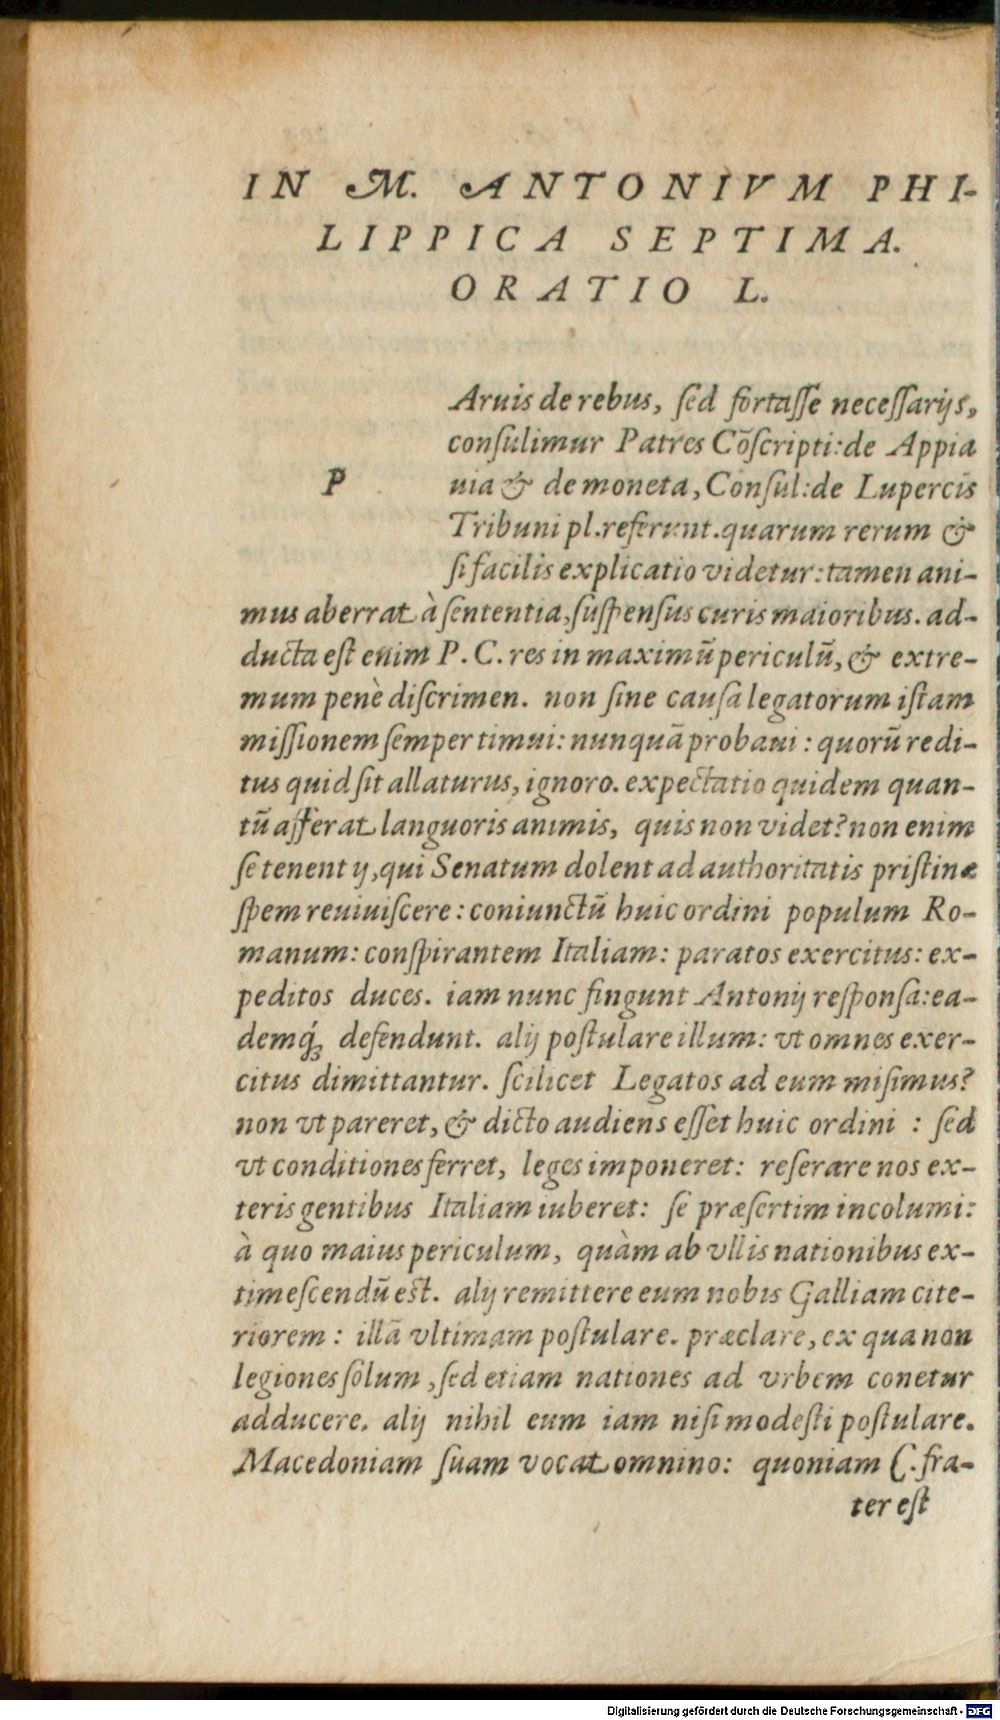 IN M. ANTONIVM PHI-
LIPPICA SEPTIMA.
ORATIO L.
P
Aruis de rebus, ſed fortaſſe neceſſarijs,
conſulimur Patres Cõſcripti: de Appia
uia & de moneta, Conſul: de Lupercis
Tribuni pl. referunt. quarum rerum &
ſi facilis explicatio videtur: tamen ani-
mus aberrat à ſententia, ſuſpenſus curis maioribus. ad-
ducta eſt enim P. C. res in maximũ periculũ, & extre-
mum penè diſcrimen. non ſine cauſa legatorum iſtam
miſſionem ſemper timui: nunquã probaui: quorũ redi-
tus quid ſit allaturus, ignoro. expectatio quidem quan-
tũ afferat languoris animis, quis non videt? non enim
ſe tenent ij, qui Senatum dolent ad authoritatis priſtinæ
ſpem reuiuiſcere: coniunctũ huic ordini populum Ro-
manum: conſpirantem Italiam: paratos exercitus: ex-
peditos duces. iam nunc fingunt Antonij reſponſa: ea-
demq́; defendunt. alij poſtulare illum: vt omnes exer-
citus dimittantur. ſcilicet Legatos ad eum miſimus?
non vt pareret, & dicto audiens eſſet huic ordini: ſed
vt conditiones ferret, leges imponeret: reſerare nos ex-
teris gentibus Italiam iuberet: ſe præſertim incolumi:
à quo maius periculum, quàm ab vllis nationibus ex-
timeſcendũ eſt. alij remittere eum nobis Galliam cite-
riorem: illã vltimam poſtulare. præclare, ex qua non
legiones ſolum, ſed etiam nationes ad vrbem conetur
adducere. alij nihil eum iam niſi modeſti poſtulare.
Macedoniam ſuam vocat omnino: quoniam C. fra-
ter eſt
Digitalisierung gefördert durch die Deutsche Forschungsgemeinschaft - DFG